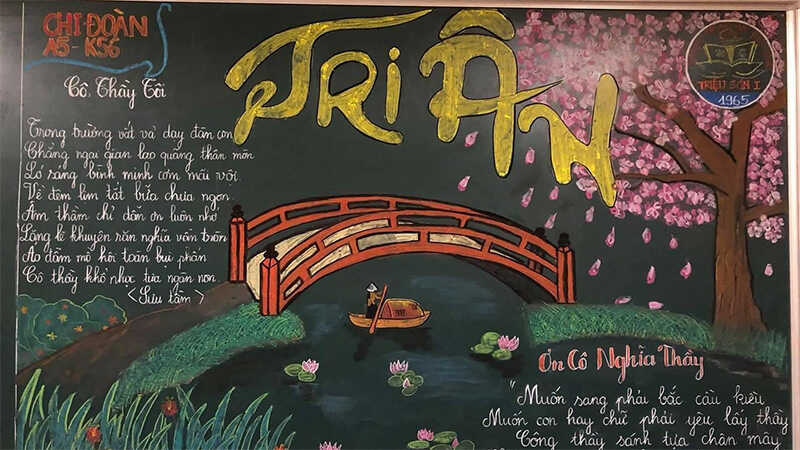 CHI ĐOÀN
A5 - K56
TRI ÂN
TRIỆU SƠN I
1965
Cô Thầy Tôi
Trong trường vất vả dạy đàn con
Chẳng ngại gian lao quảng thân mòn
Ló sáng bình minh cơm vội
Về đêm lim tắt bữa chưa ngon
Âm thầm chỉ dẫn ơn luôn nhớ
Lặng lẽ khuyên răn nghĩa vẫn tròn
Áo đẫm mồ hôi toàn bụi phấn
Cô thầy khổ nhọc tựa ngàn non
<Sưu tầm>
Ơn Cô Nghĩa Thầy
"Muốn sang phải bắc cầu kiều
Muốn con hay chữ phải yêu lấy thầy
Công thầy sánh tựa chân mây